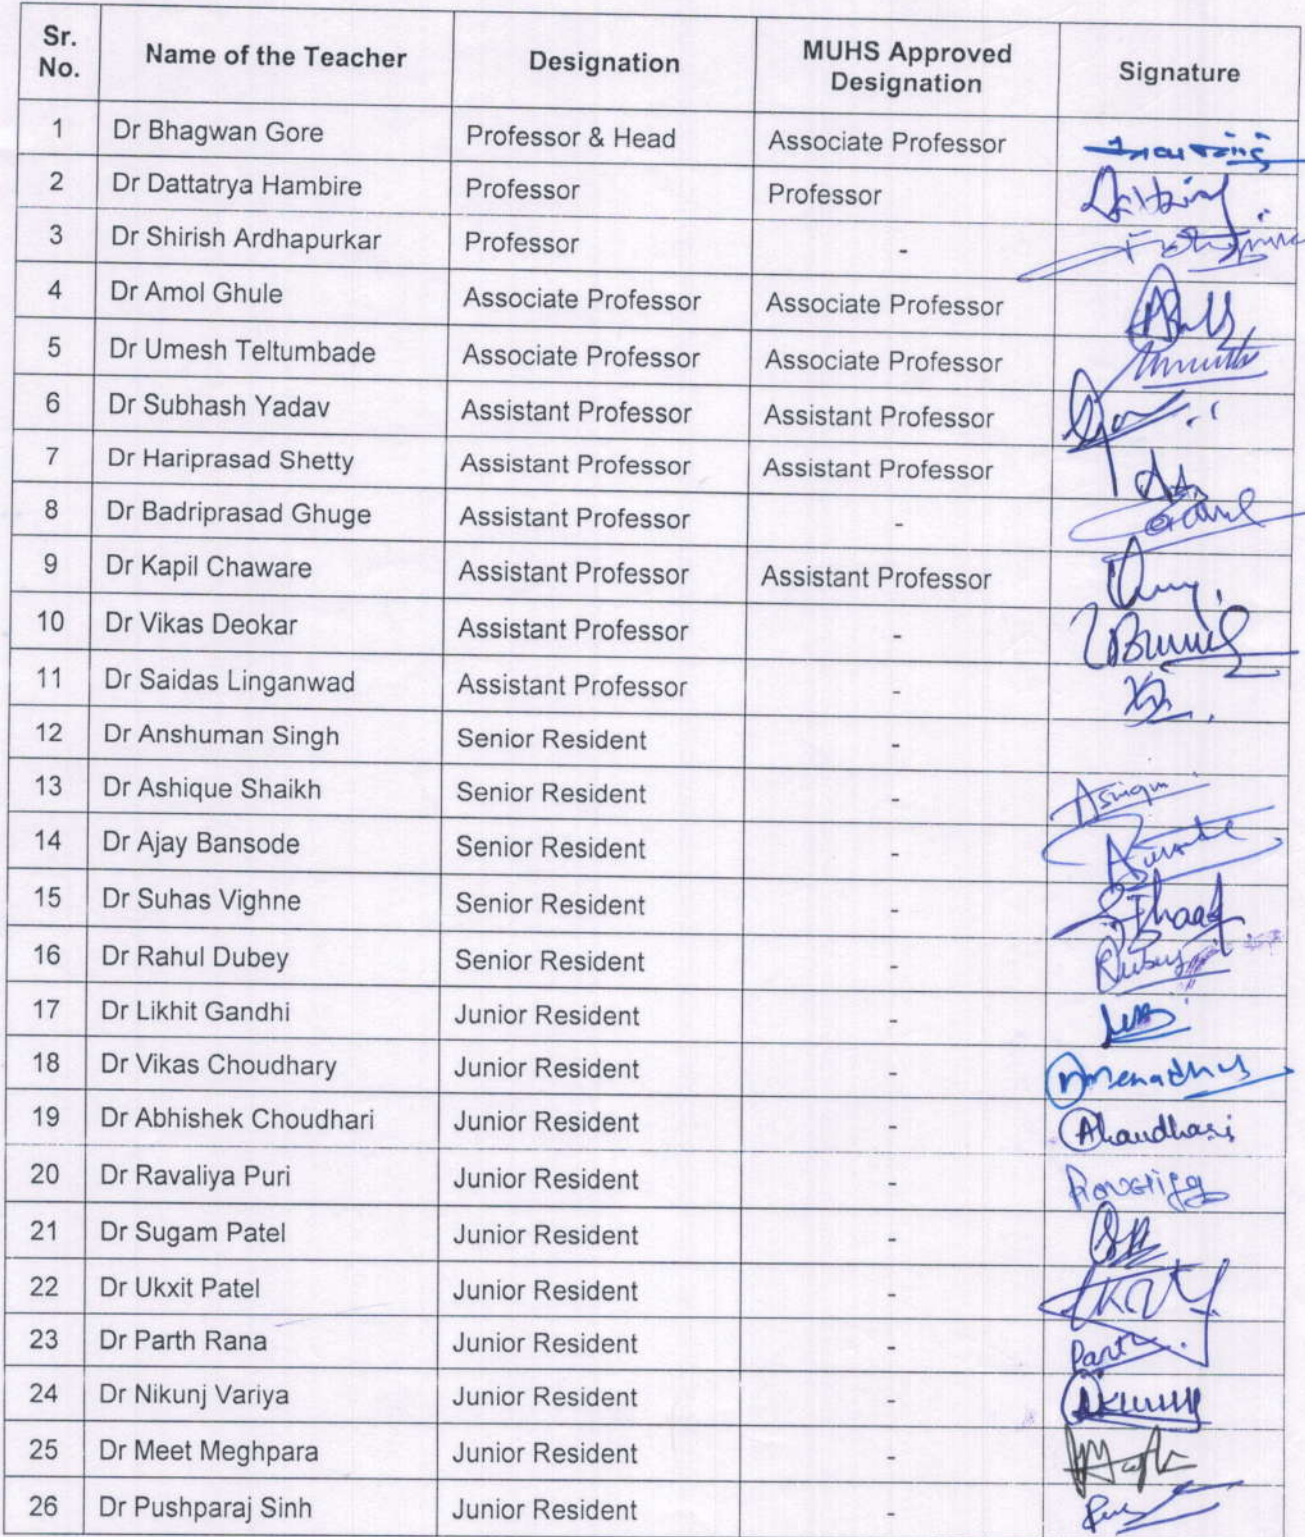 Sr. No. Name of the Teacher Designation MUHS Approved Designation Signature
1 Dr Bhagwan Gore Professor & Head Associate Professor
2 Dr Dattatrya Hambire Professor Professor
3 Dr Shirish Ardhapurkar Professor -
4 Dr Amol Ghule Associate Professor Associate Professor
5 Dr Umesh Teltumbade Associate Professor Associate Professor
6 Dr Subhash Yadav Assistant Professor Assistant Professor
7 Dr Hariprasad Shetty Assistant Professor Assistant Professor
8 Dr Badriprasad Ghuge Assistant Professor -
9 Dr Kapil Chaware Assistant Professor Assistant Professor
10 Dr Vikas Deokar Assistant Professor -
11 Dr Saidas Linganwad Assistant Professor -
12 Dr Anshuman Singh Senior Resident -
13 Dr Ashique Shaikh Senior Resident -
14 Dr Ajay Bansode Senior Resident -
15 Dr Suhas Vighne Senior Resident -
16 Dr Rahul Dubey Senior Resident -
17 Dr Likhit Gandhi Junior Resident -
18 Dr Vikas Choudhary Junior Resident -
19 Dr Abhishek Choudhari Junior Resident -
20 Dr Ravaliya Puri Junior Resident -
21 Dr Sugam Patel Junior Resident -
22 Dr Ukxit Patel Junior Resident -
23 Dr Parth Rana Junior Resident -
24 Dr Nikunj Variya Junior Resident -
25 Dr Meet Meghpara Junior Resident -
26 Dr Pushparaj Sinh Junior Resident -